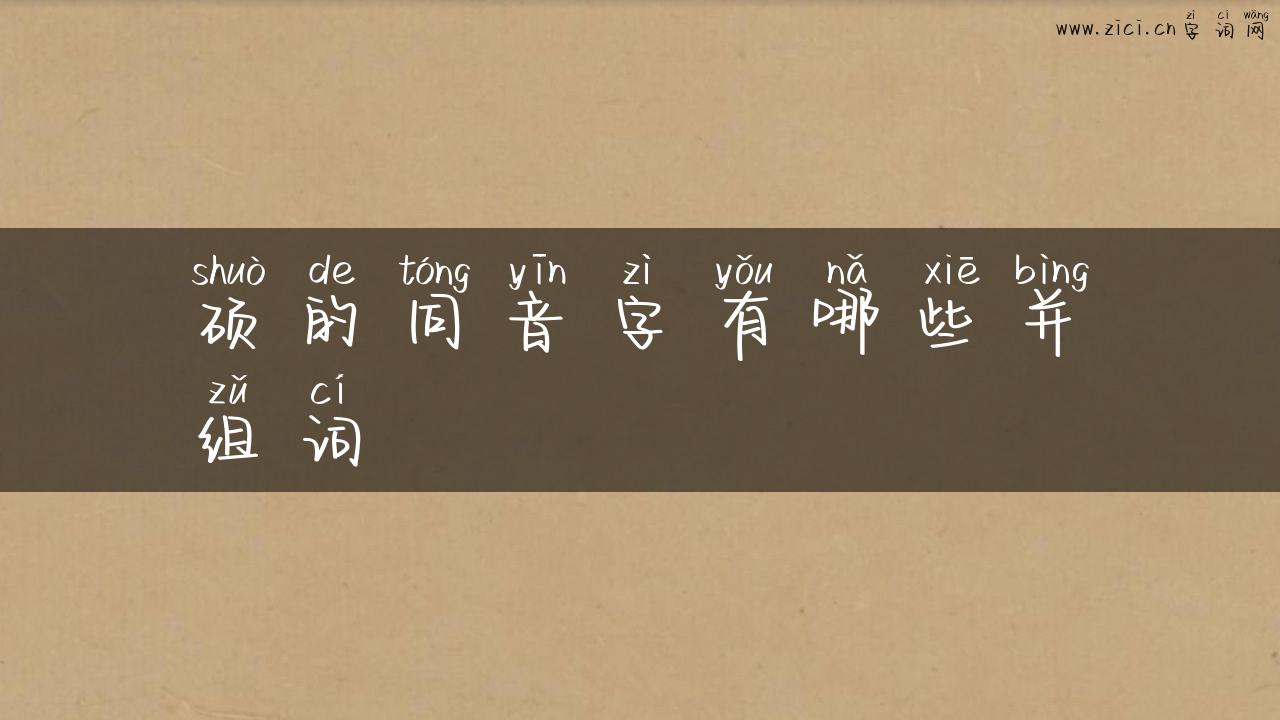 www.zici.cn 字词网
zì cí wǎng
shuò de tóng yīn zì yǒu nǎ xiē bìng
硕的同音字有哪些并
zǔ cí
组词